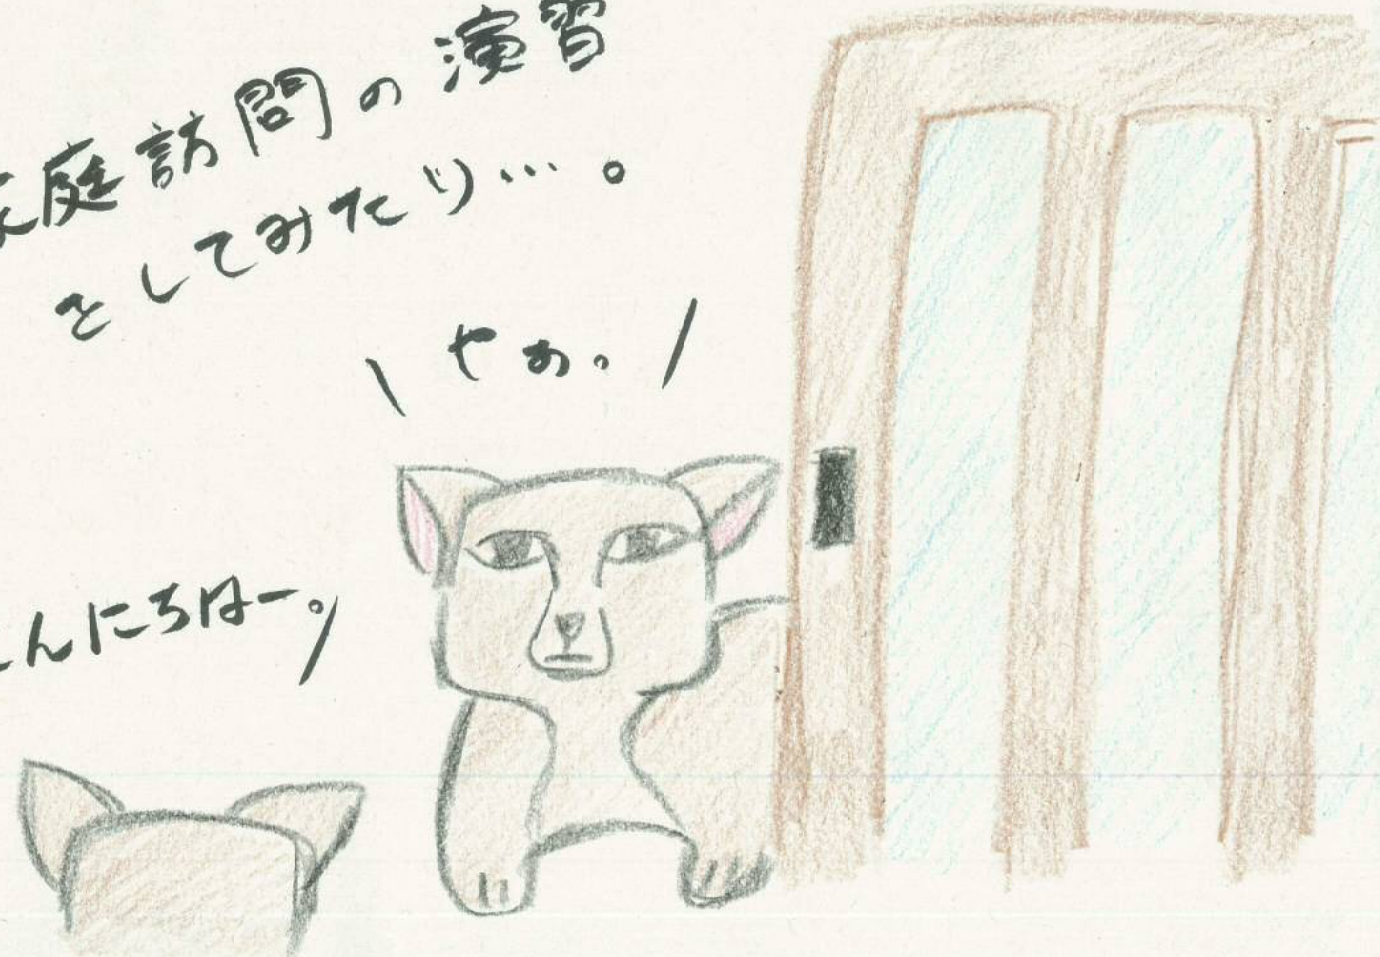 家庭訪問の演習
をしてみたり…。
やぁ。
こんにちはー。